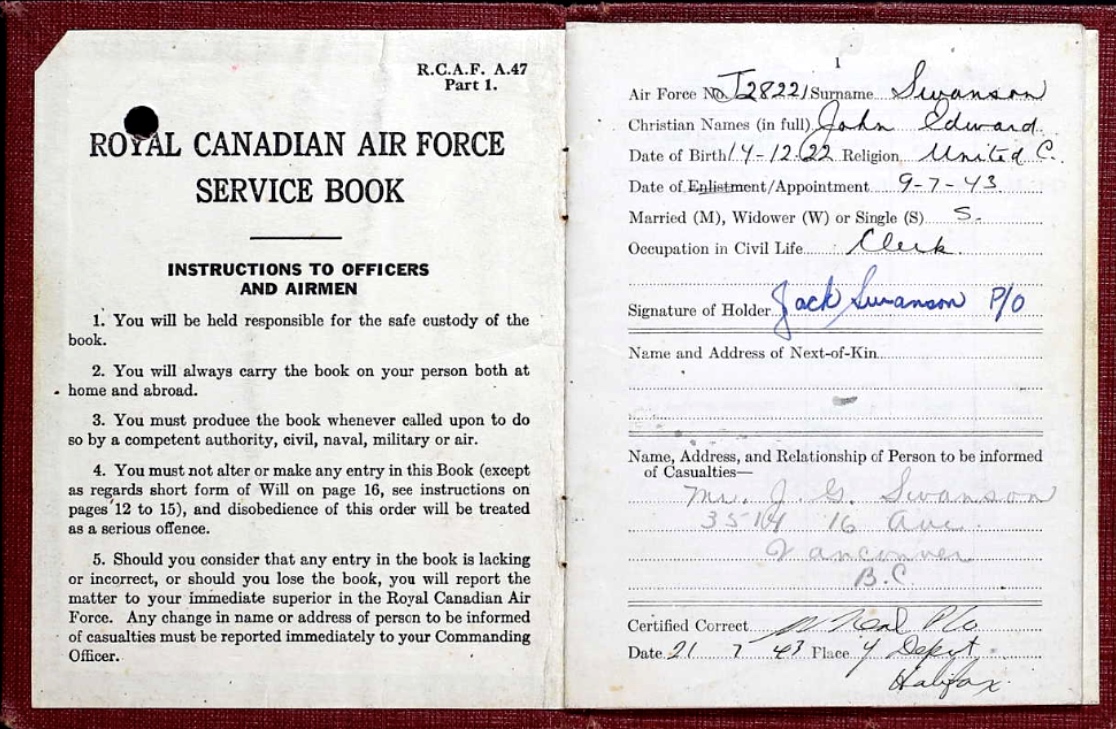 R.C.A.F. A.47
Part 1.
ROYAL CANADIAN AIR FORCE
SERVICE BOOK
INSTRUCTIONS TO OFFICERS
AND AIRMEN
1. You will be held responsible for the safe custody of the
book.
2. You will always carry the book on your person both at
home and abroad.
3. You must produce the book whenever called upon to do
so by a competent authority, civil, naval, military or air.
4. You must not alter or make any entry in this Book (except
as regards short form of Will on page 16, see instructions on
pages 12 to 15), and disobedience of this order will be treated
as a serious offence.
5. Should you consider that any entry in the book is lacking
or incorrect, or should you lose the book, you will report the
matter to your immediate superior in the Royal Canadian Air
Force. Any change in name or address of person to be informed
of casualties must be reported immediately to your Commanding
Officer.
1
Air Force No. J28221 Surname Swanson
Christian Names (in full) John Edward
Date of Birth 14-12-22 Religion United C.
Date of Enlistment/Appointment 9-7-43
Married (M), Widower (W) or Single (S) S.
Occupation in Civil Life Clerk
Signature of Holder Jack Swanson P/O
Name and Address of Next-of-Kin
Name, Address, and Relationship of Person to be informed
of Casualties—
Mr. J. G. Swanson
16 Ave.
Vancouver
B.C.
Certified Correct P/O
Date 21 7 43 Place Y Depot
Halifax